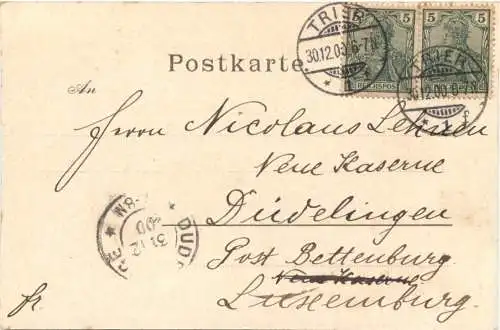 TRIER
30.12.00.6-7N.
* 1 f
5
5
REICHSPOST
TRIER
30.12.00.6-7N.
* 1 f
Postkarte.
An
Herrn Nicolaus Lehnen
Neue Kaserne
Düdelingen
Post Bettenburg
Neue Kaserne
Luxemburg.
fr.
31.12
-8M